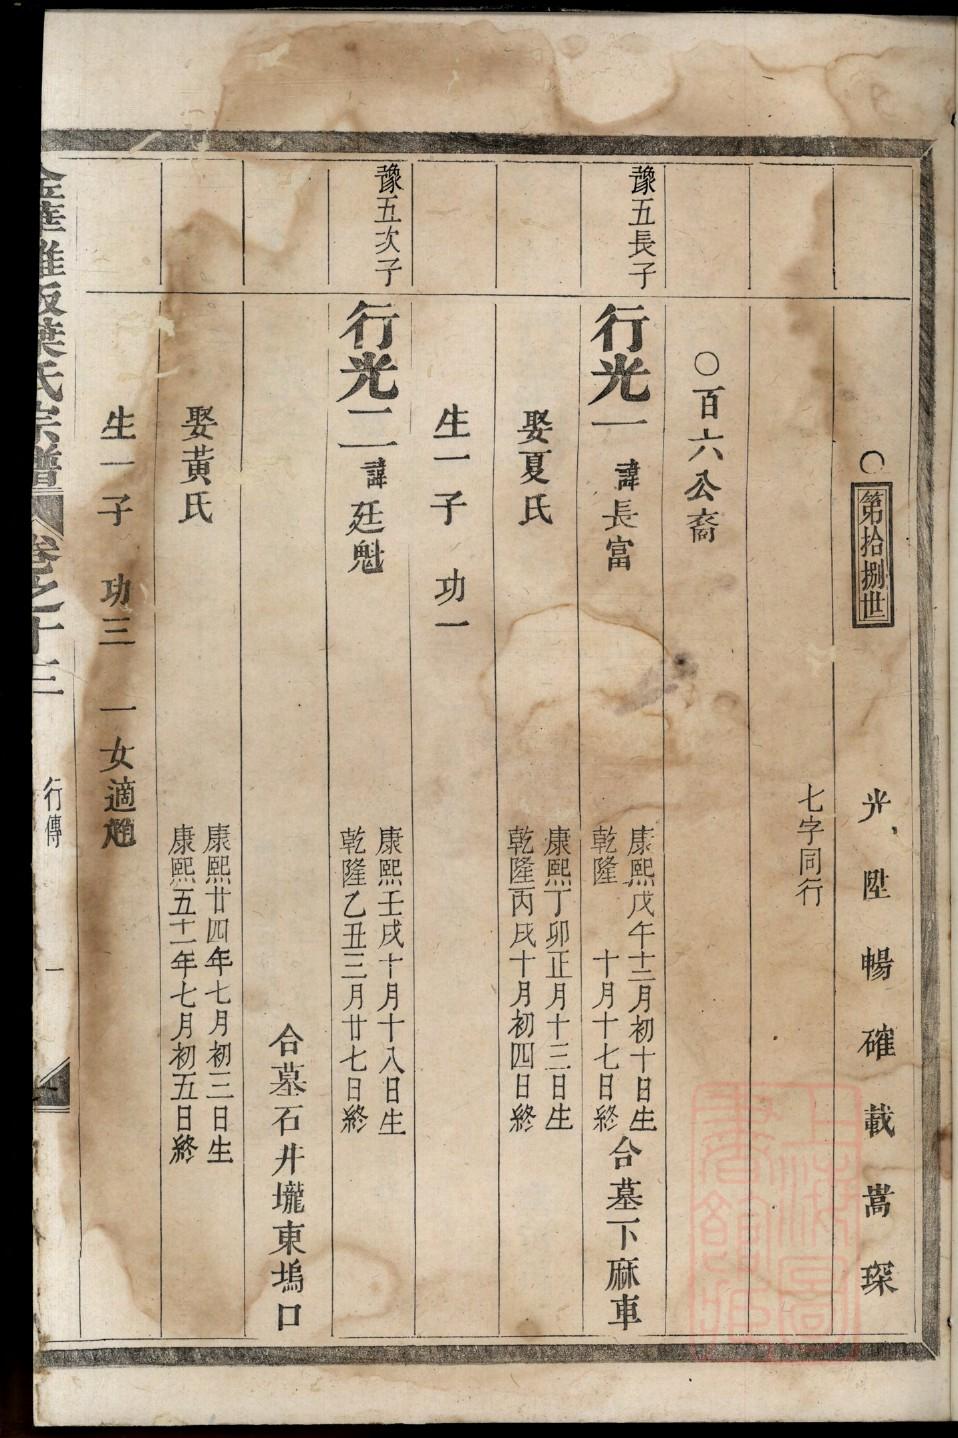 ○第拾捌世
光
陞
暢
確
載
嵩
琛
七字同行
○百六公裔
豫五長子
行光一 諱長富
康熙戊午十二月初十日生
乾隆 十月十七日終
合墓下麻車
娶夏氏
康熙丁卯正月十三日生
乾隆丙戌十月初四日終
生一子 功一
豫五次子
行光二 諱廷魁
康熙壬戌十月十八日生
乾隆乙丑三月廿七日終
合墓石井壠東塢口
娶黃氏
康熙廿四年七月初三日生
康熙五十一年七月初五日終
生一子 功三 一女適趙
葉氏宗譜
卷之十三
行傳
一
上海圖書館藏